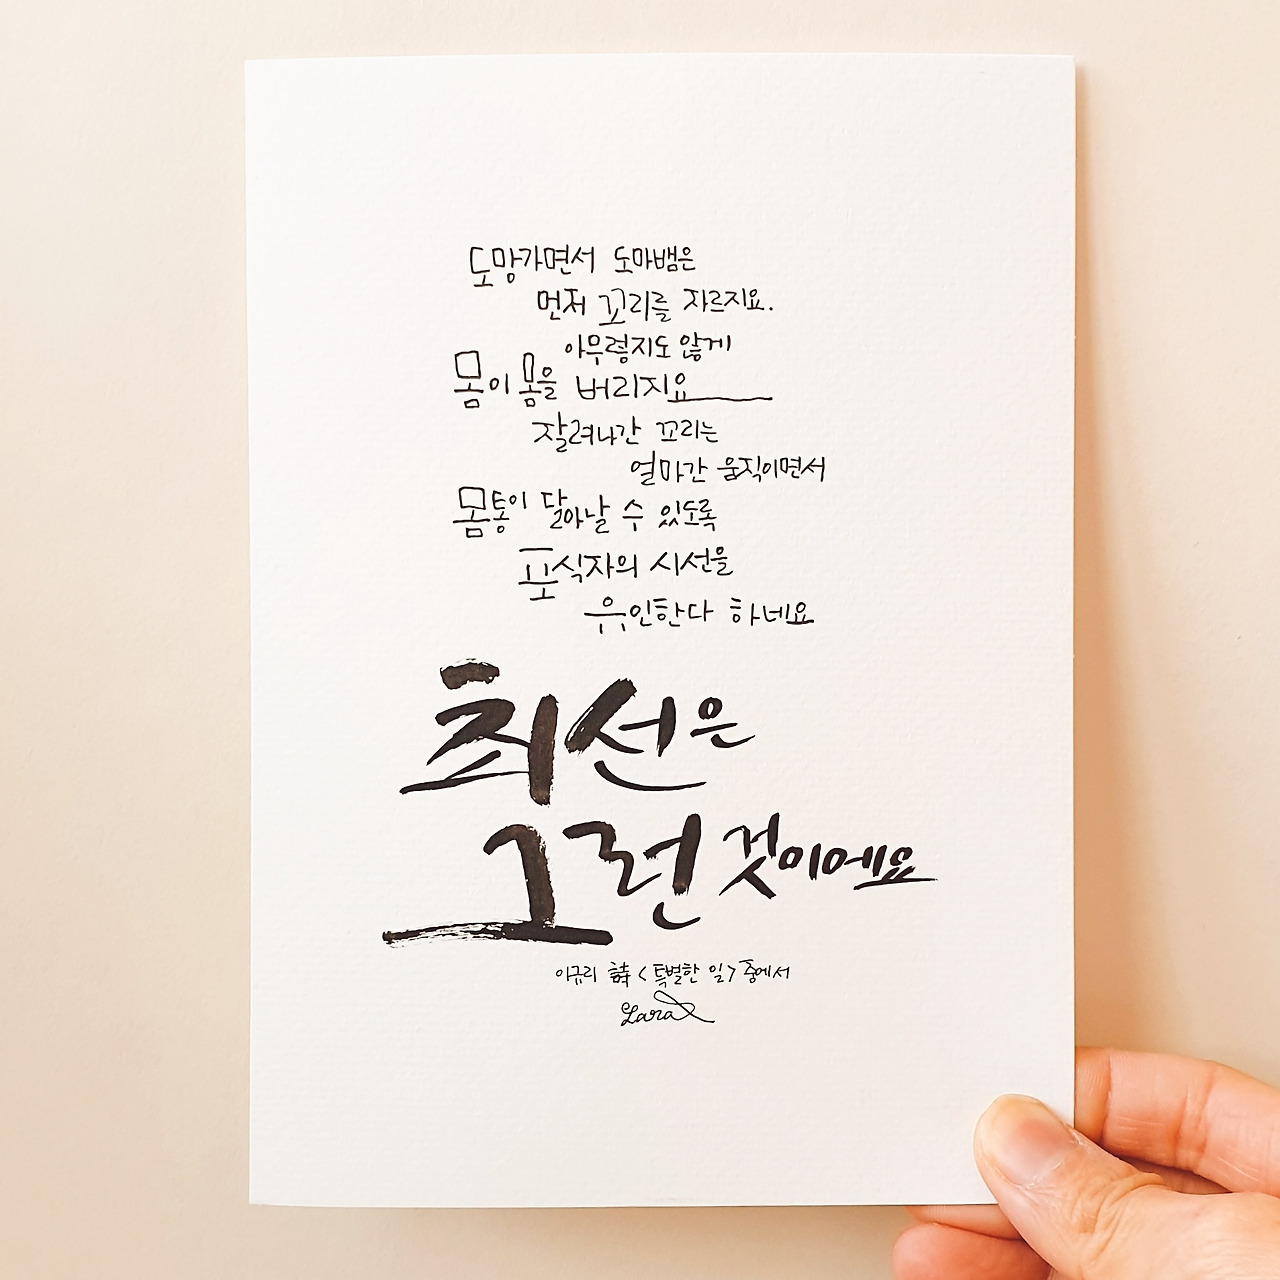 도망가면서 도마뱀은
먼저 꼬리를 자르지요.
아무렇지도 않게
몸이 몸을 버리지요
잘려나간 꼬리는
얼마간 움직이면서
몸통이 달아날 수 있도록
포식자의 시선을
유인한다 하네요
최선은
그런 것이에요
이규리 詩 <특별한 일> 중에서
Lara